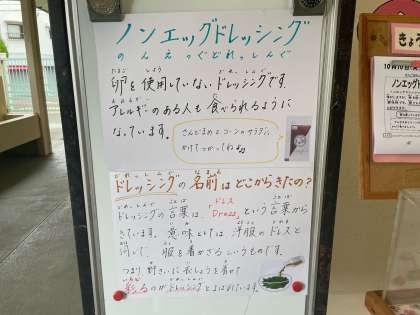 ノンエッグドレッシング
のんえっぐどれっしんぐ
卵を使用していないドレッシングです。
アレルギーのある人も食べられるように
なっています。
さんどまめとコーンのサラダに
かけてつかってね♪
ドレッシングの名前はどこからきたの?
ドレッシングの言葉は、「ドレス
Dress」という言葉から
きています。意味としては洋服のドレスと
同じで、服を着かざるというものです。
つまり野さいに衣しょうを着せて
彩るのがドレッシングとよばれています。
きょう
10月10日
ノンエッグ